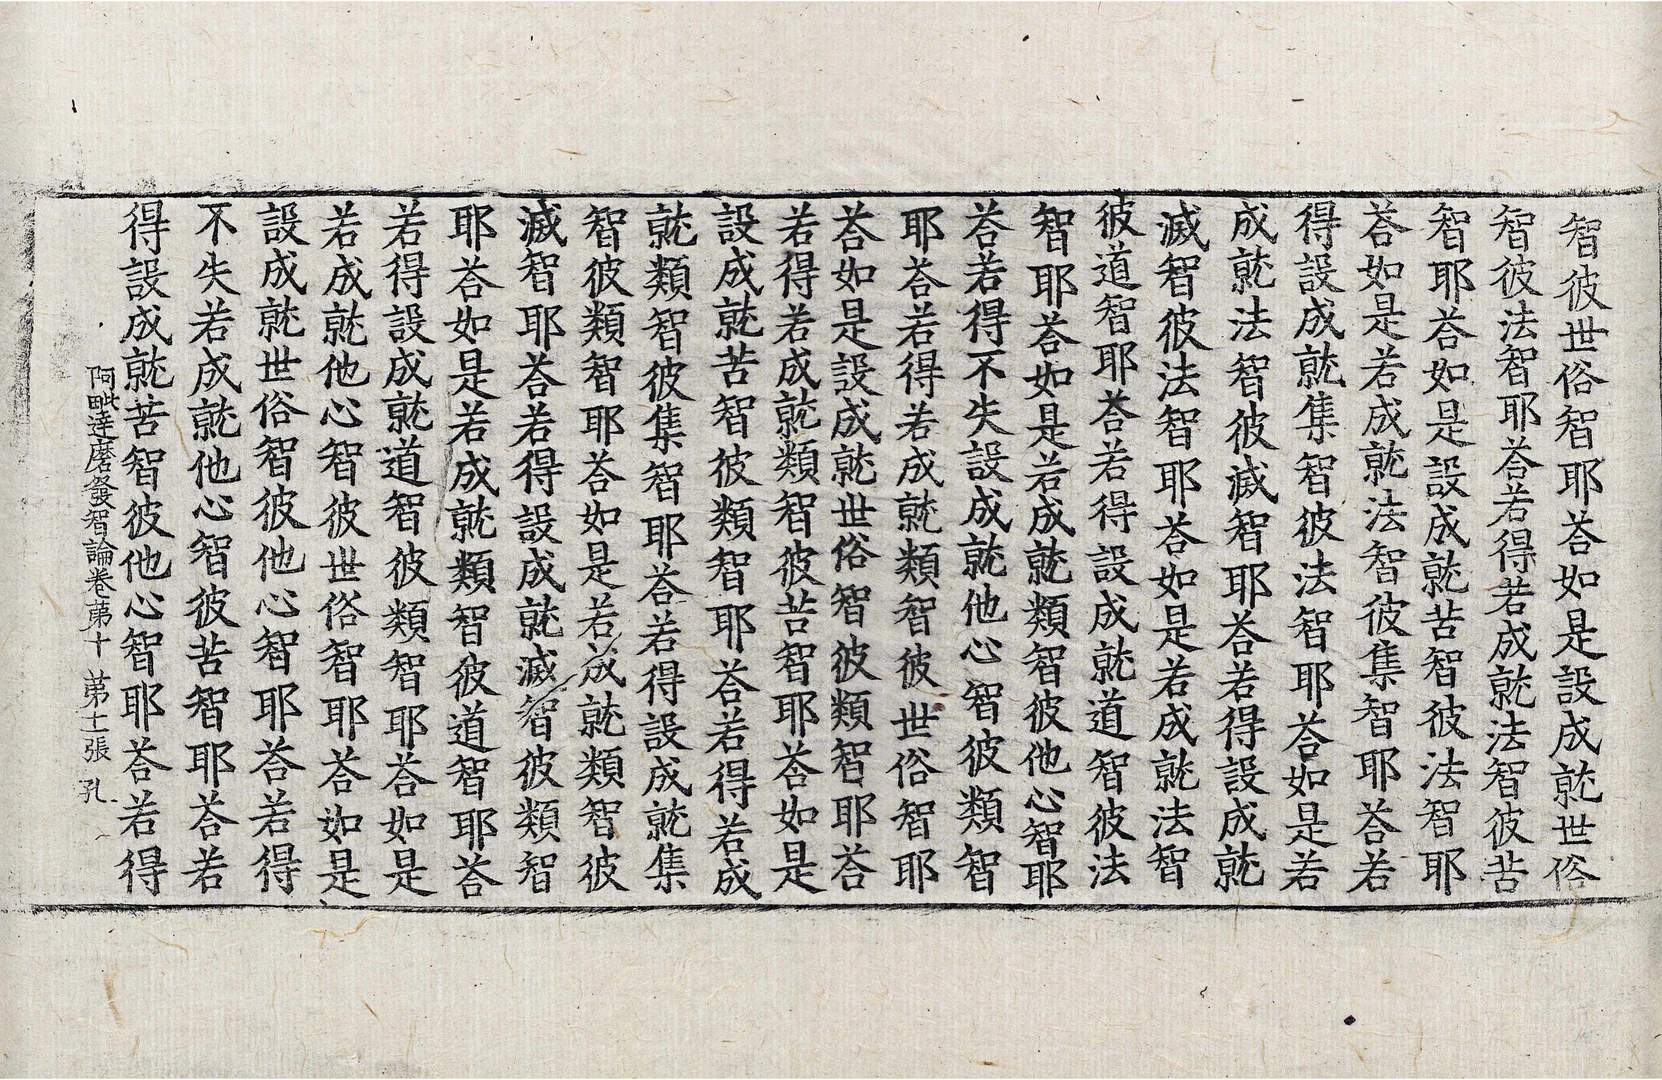 智彼世俗智耶荅如是設成就世俗
智彼法智耶荅若得若成就法智彼苦
智耶荅如是設成就苦智彼法智耶
荅如是若成就法智彼集智耶荅若
得設成就集智彼法智耶荅如是若
成就法智彼滅智耶荅若得設成就
滅智彼法智耶荅如是若成就法智
彼道智耶荅若得設成就道智彼法
智耶荅如是若成就類智彼他心智耶
荅若得不失設成就他心智彼類智
耶荅若得若成就類智彼世俗智耶
荅如是設成就世俗智彼類智耶荅
若得若成就類智彼苦智耶荅如是
設成就苦智彼類智耶荅若得若成
就類智彼集智耶荅若得設成就集
智彼類智耶荅如是若成就類智彼
滅智耶荅若得設成就滅智彼類智
耶荅如是若成就類智彼道智耶荅
若得設成就道智彼類智耶荅如是
若成就他心智彼世俗智耶荅如是
設成就世俗智彼他心智耶荅若得
不失若成就他心智彼苦智耶荅若
得設成就苦智彼他心智耶荅若得
阿毗達磨發智論卷苐十 苐十一張 孔